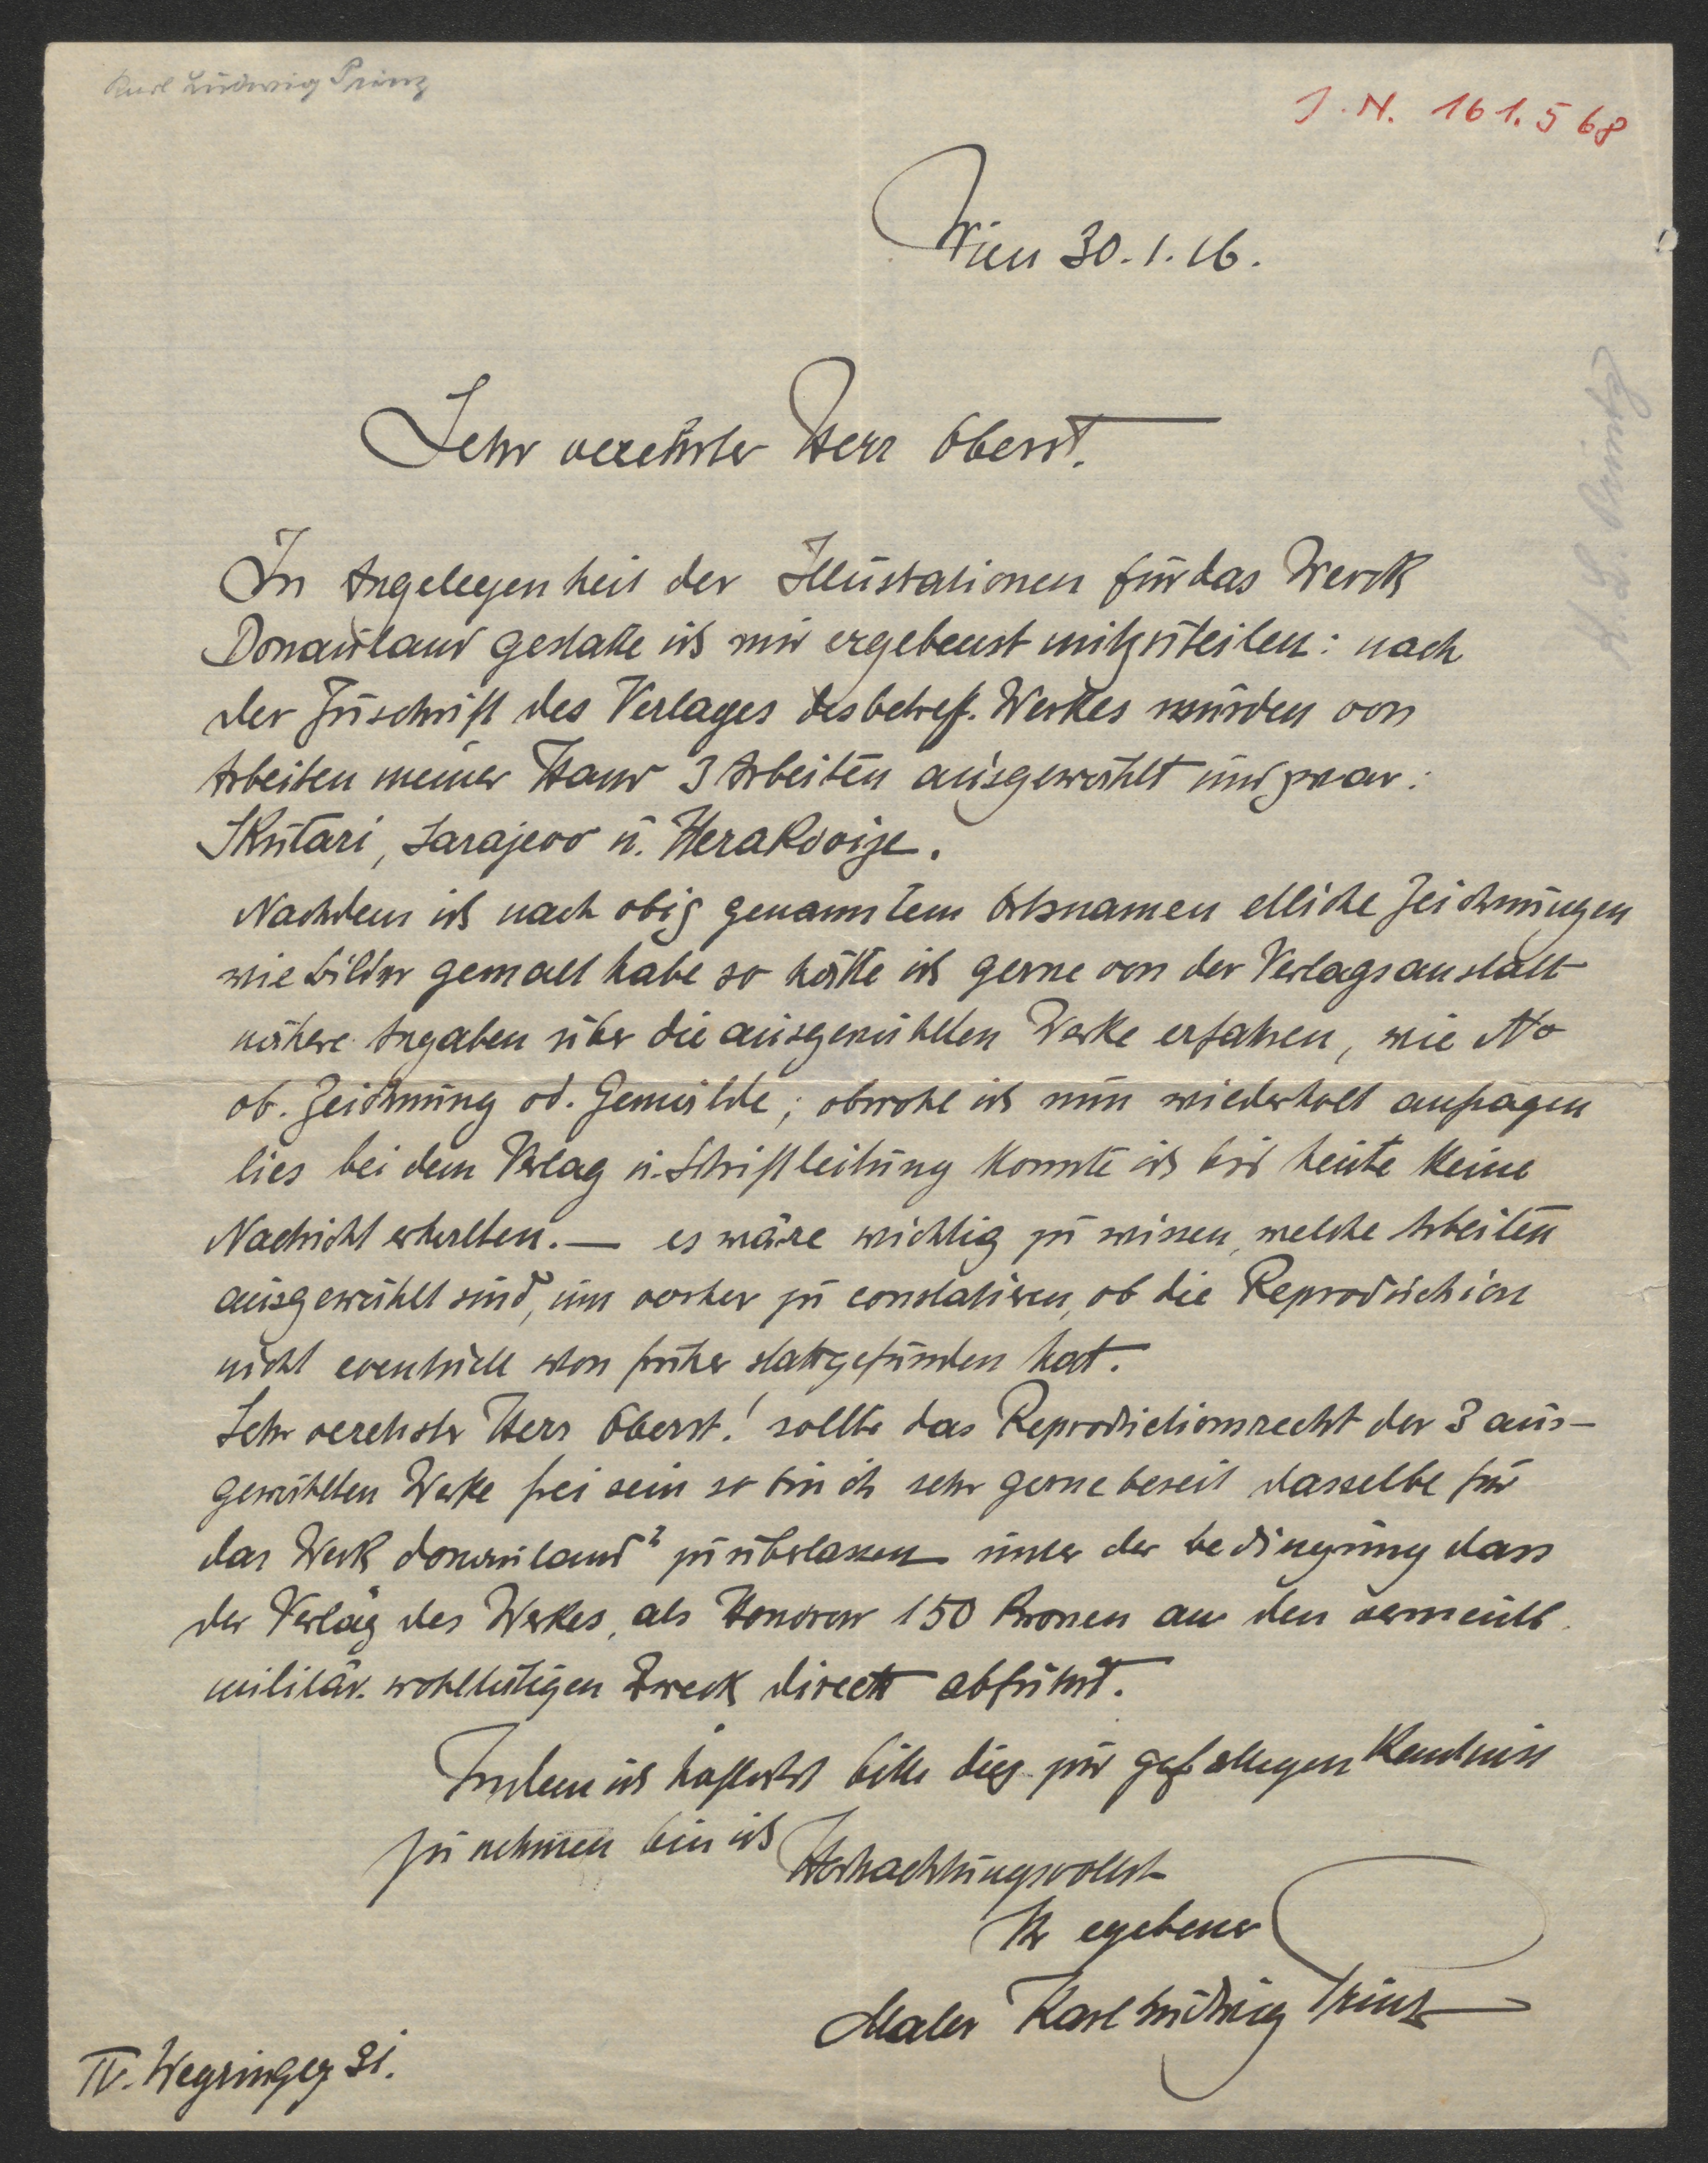 Karl Ludwig Prinz
J. N. 161.568
K. L. Prinz
Wien 30.1.16.
Sehr verehrter Herr Oberst.
In Angelegenheit der Illustationen für das Werck
Donauland gestatte ich mir ergebenst mitzuteilen: nach
der Zuschrift des Verlages des betreff. Werkes wurden von
Arbeiten meiner Hand 3 Arbeiten ausgewählt und zwar:
Skutari, Sarajevo u.
Nachdem ich nach obig genanntem Ortsnamen etliche Zeichnungen
wie Bilder gemalt habe so hätte ich gerne von der Verlagsanstalt
nähere Angaben über die ausgewählten Werke erfahren, wie No
ob. Zeichnung od. Gemälde; obwohl ich nun wiederholt anfragen
lies bei dem Verlag u. Schriftleitung konnte ich bis heute keine
Nachricht erhalten. — es wäre wichtig zu wissen, welche Arbeiten
ausgewählt sind, um vorher zu constatiren, ob die Reproduction
nicht eventuell schon früher stattgefunden hat.
Sehr verehrter Herr Oberst! sollte das Reproductionsrecht der 3 aus-
gewählten Werke frei sein so bin ich sehr gerne bereit dasselbe für
das Werk Donauland" zu überlassen unter der Bedingung dass
der Verlag des Werkes, als Honorar 150 Kronen an den
militär. wohltätigen Zweck direct abführt.
Indem ich höflichst bitte dies zur gefälligen Kentniss
zu nehmen bin ich
Hochachtungsvollst
Ihr ergebener
Maler Karl Ludwig Prinz
IV. 21.